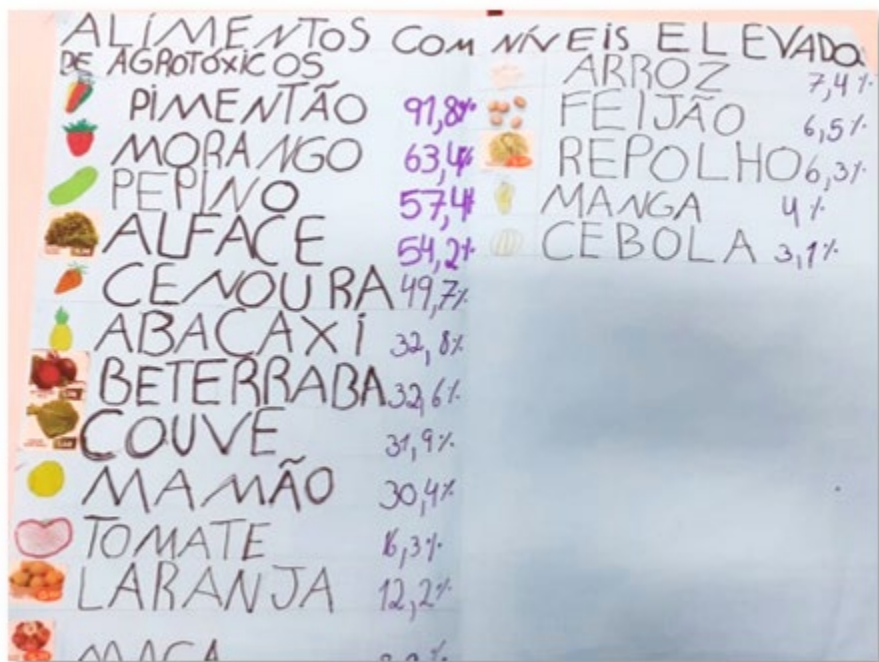 ALIMENTOS COM NÍVEIS ELEVADO
DE AGROTÓXICOS
PIMENTÃO 91,8%
MORANGO 63,4%
PEPINO 57,4%
ALFACE 54,2%
CENOURA 49,7%
ABACAXI 32,8%
BETERRABA 32,6%
COUVE 31,9%
MAMÃO 30,4%
TOMATE 16,3%
LARANJA 12,2%
ARROZ 7,4%
FEIJÃO 6,5%
REPOLHO 6,3%
MANGA 4%
CEBOLA 3,1%